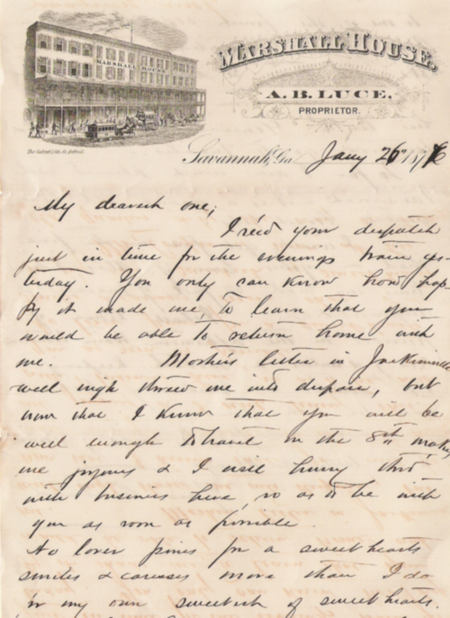 MARSHALL HOUSE
MARSHALL HOUSE.
A. B. LUCE.
PROPRIETOR.
Savannah, Ga Jany 26" 1876
My dearest one;
I rec'd your despatch
just in time for the evenings train yes-
terday. You only can know how hap-
py it made me, to learn that you
would be able to return home with
me. Mother's letter in Jacksonville
well nigh threw me into despair, but
now that I know that you will be
well enough to travel on the 8th makes
me joyous & I will hurry thro'
with business here, so as to be with
you as soon as possible.
No lover pines for a sweethearts
smiles & caresses more than I do
for my own sweetest of sweethearts.